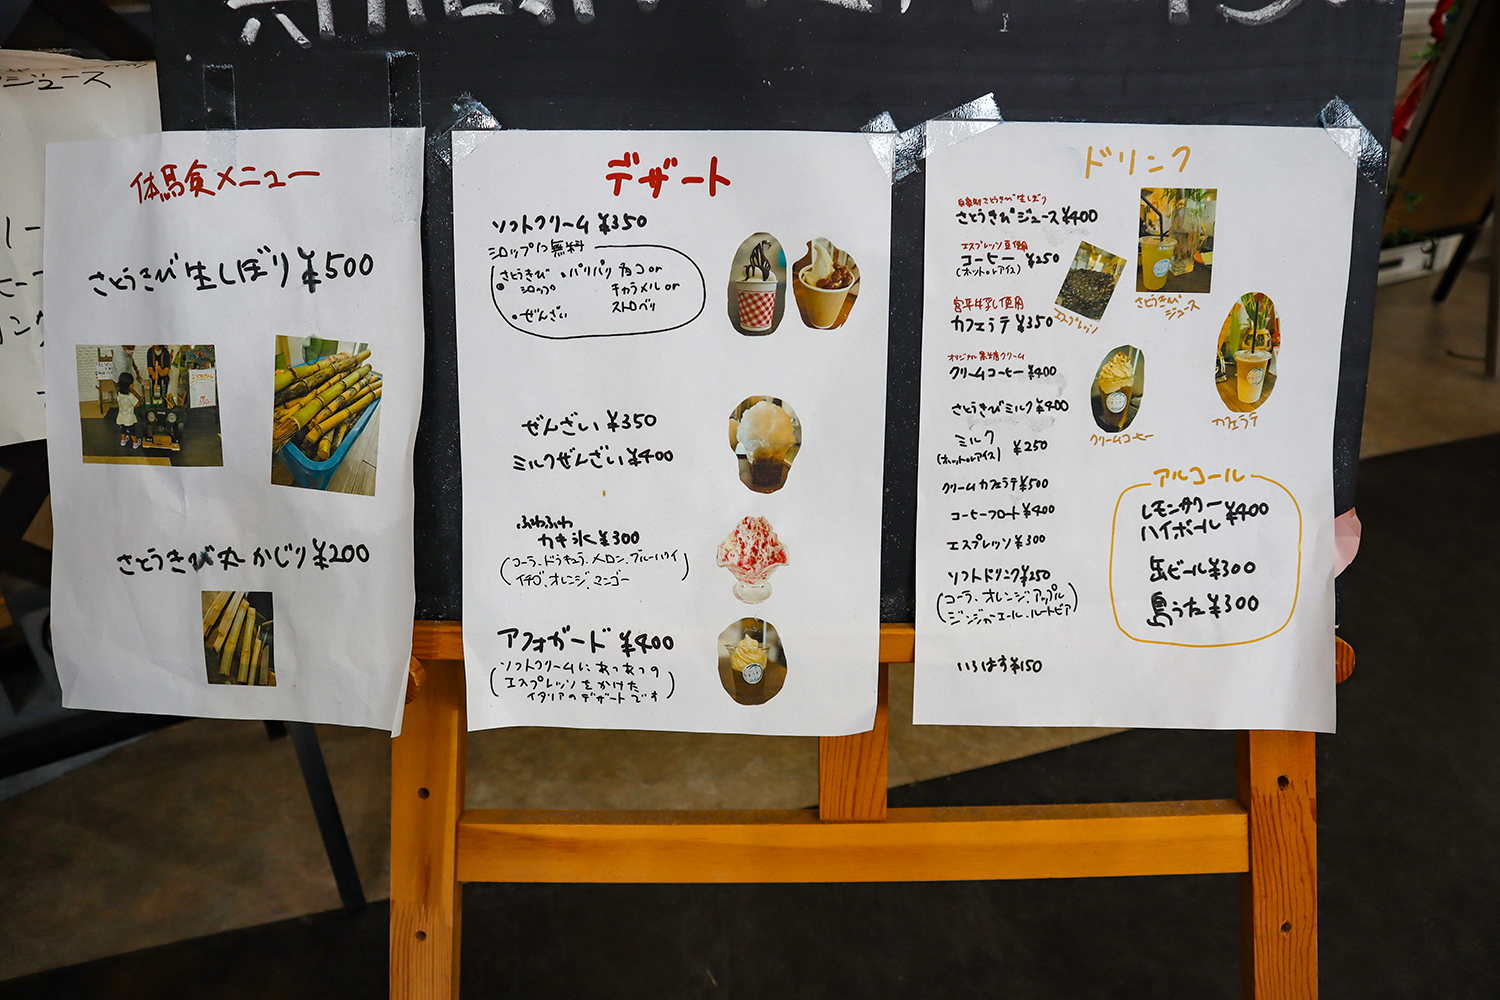 ジュース
体馬食メニュー
さとうきび生しぼり ¥500
さとうきび丸かじり ¥200
デザート
ソフトクリーム ¥350
シロップ 無料
さとうきび
シロップ
・パリパリチョコ or
キャラメル or
ストロベリ
・ぜんざい
ぜんざい ¥350
ミルクぜんざい ¥400
ふわふわ
カキ氷 ¥300
(コーラ、ドラキュラ、メロン、ブルーハワイ
イチゴ、オレンジ、マンゴー)
アフォガード ¥400
(ソフトクリームにあつあつの
エスプレッソをかけた
イタリアのデザートです)
ドリンク
さとうきび生しぼり
さとうきびジュース ¥400
エスプレッソ豆使用
コーヒー ¥250
(ホット or アイス)
宮平牛乳使用
カフェラテ ¥350
オリジナル黒糖クリーム
クリームコーヒー ¥400
さとうきびミルク ¥400
ミルク ¥250
(ホット or アイス)
クリームカフェラテ ¥500
コーヒーフロート ¥400
エスプレッソ ¥300
ソフトドリンク ¥250
(コーラ、オレンジ、アップル
ジンジャーエール、ルートビア)
いろはす ¥150
エスプレッソ
さとうきび
ジュース
クリームコーヒー
カフェラテ
アルコール
レモンサワー
ハイボール ¥400
缶ビール ¥300
島うた ¥300